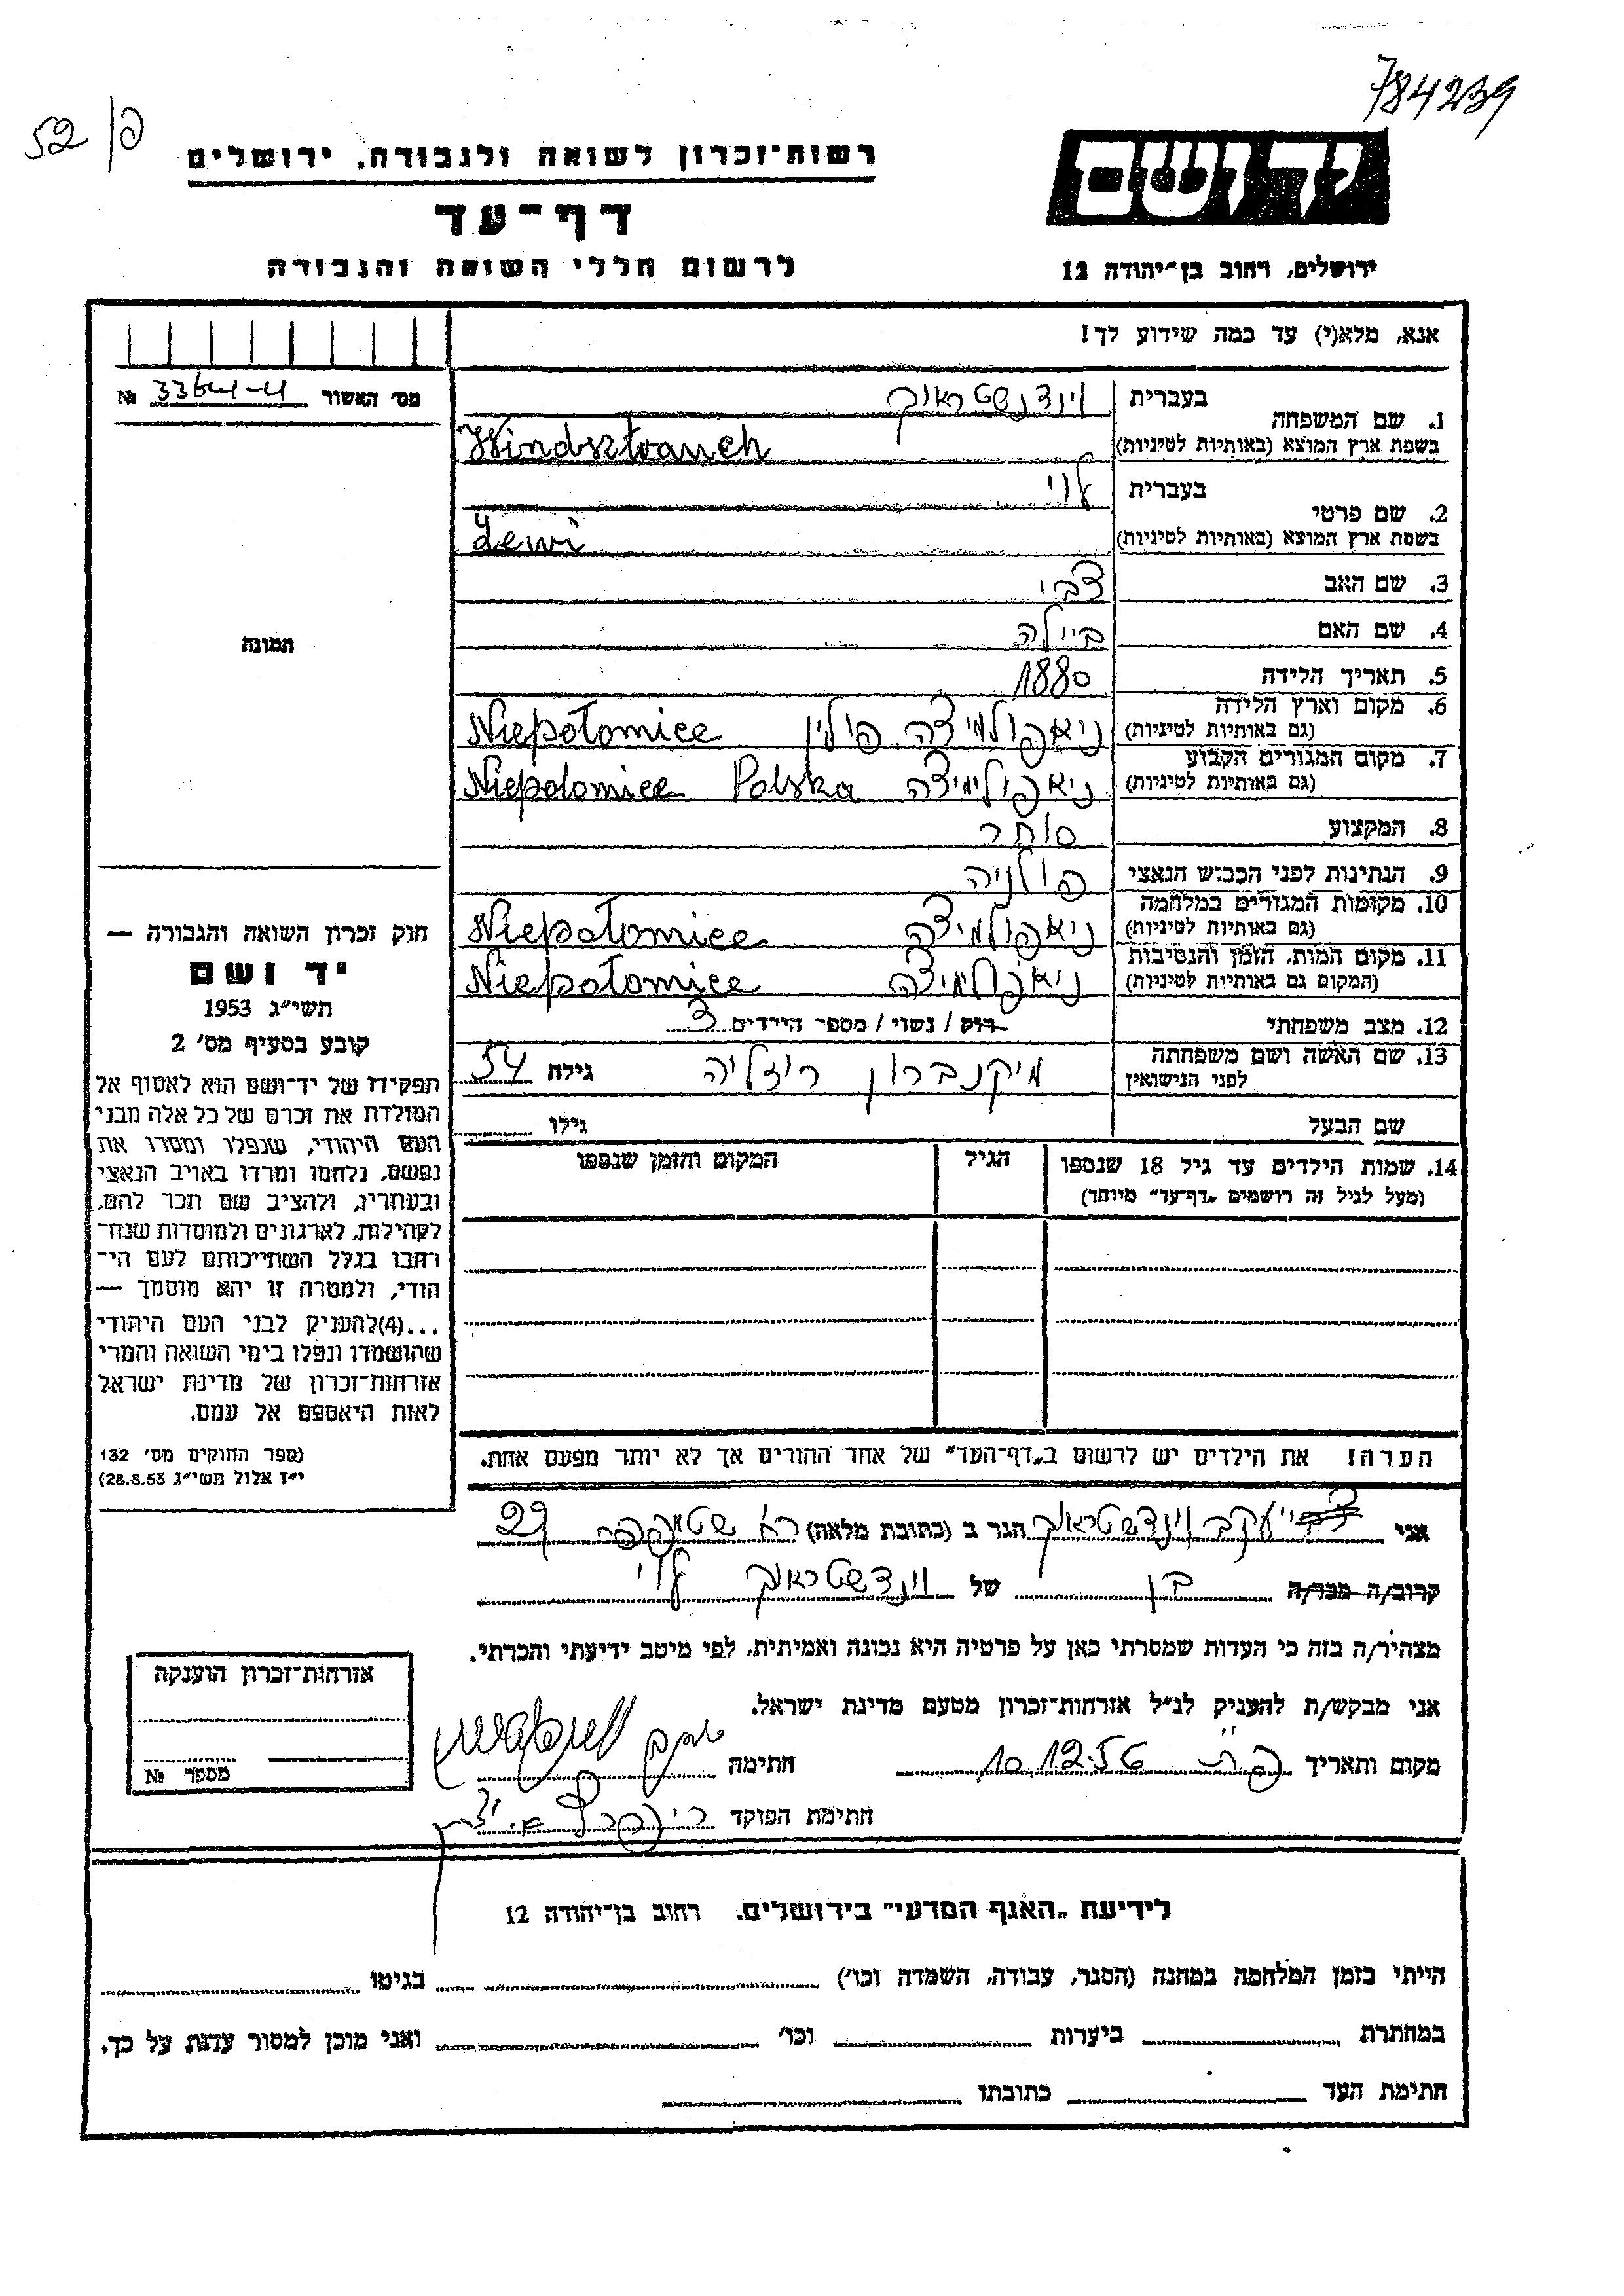 784239
52 / פ
יד ושם
רשות־זכרון לשואה ולגבורה, ירושלים
דף־עד
לרשום חללי השואה והגבורה
ירושלים, רחוב בן־יהודה 12
אנא, מלא(י) עד כמה שידוע לך!
מס׳ האשור № 
1. שם המשפחה
בעברית וינדשטראוך
בשפת ארץ המוצא (באותיות לטיניות) Windsztrauch
2. שם פרטי
בעברית לוי
בשפת ארץ המוצא (באותיות לטיניות) Lewi
3. שם האב צבי
4. שם האם ביילה
5. תאריך הלידה 1880
6. מקום וארץ הלידה ניאפולמיצה פולין Niepołomice
(גם באותיות לטיניות)
7. מקום המגורים הקבוע ניאפולימיצה Niepołomice Polska
(גם באותיות לטיניות)
8. המקצוע סוחר
9. הנתינות לפני הכבוש הנאצי פולניה
10. מקומות המגורים במלחמה ניאפולמיצה Niepołomice
(גם באותיות לטיניות)
11. מקום המות, הזמן והנסיבות ניאפולמיצה Niepołomice
(המקום גם באותיות לטיניות)
12. מצב משפחתי רוק / נשוי / מספר הילדים 3
13. שם האשה ושם משפחתה מיקנברון רוזליה גילה 54
לפני הנישואין
שם הבעל גילו
14. שמות הילדים עד גיל 18 שנספו הגיל המקום והזמן שנספו
(מעל לגיל זה רושמים „דף־עד״ מיוחד)
הערה! את הילדים יש לרשום ב„דף־העד״ של אחד ההורים אך לא יותר מפעם אחת.
תמונה
חוק זכרון השואה והגבורה —
יד ושם
תשי״ג 1953
קובע בסעיף מס׳ 2
תפקידו של יד־ושם הוא לאסוף אל
המולדת את זכרם של כל אלה מבני
העם היהודי, שנפלו ומסרו את
נפשם, נלחמו ומרדו באויב הנאצי
ובעוזריו, ולהציב שם וזכר להם,
לקהילות, לארגונים ולמוסדות שנח־
רבו בגלל השתייכותם לעם הי־
הודי, ולמטרה זו יהא מוסמך —
...(4)להעניק לבני העם היהודי
שהושמדו ונפלו בימי השואה והמרי
אזרחות־זכרון של מדינת ישראל
לאות היאספם אל עמם.
(ספר החוקים מס׳ 132
י״ז אלול תשי״ג 28.8.53)
אני יעקב וינדשטראוך הגר ב (כתובת מלאה) 29
קרוב/ה מכר/ה בן של וינדשטראוך לוי
מצהיר/ה בזה כי העדות שמסרתי כאן על פרטיה היא נכונה ואמיתית, לפי מיטב ידיעתי והכרתי.
אני מבקש/ת להעניק לנ״ל אזרחות־זכרון מטעם מדינת ישראל.
מקום ותאריך 10.12.56 חתימה יעקב
חתימת הפוקד
אזרחות־זכרון הוענקה
מספר №
לידיעת „האגף המדעי״ בירושלים, רחוב בן־יהודה 12
הייתי בזמן המלחמה במחנה (הסגר, עבודה, השמדה וכו׳) בגיטו
במחתרת ביערות וכו׳ ואני מוכן למסור עדות על כך.
חתימת העד כתובתו